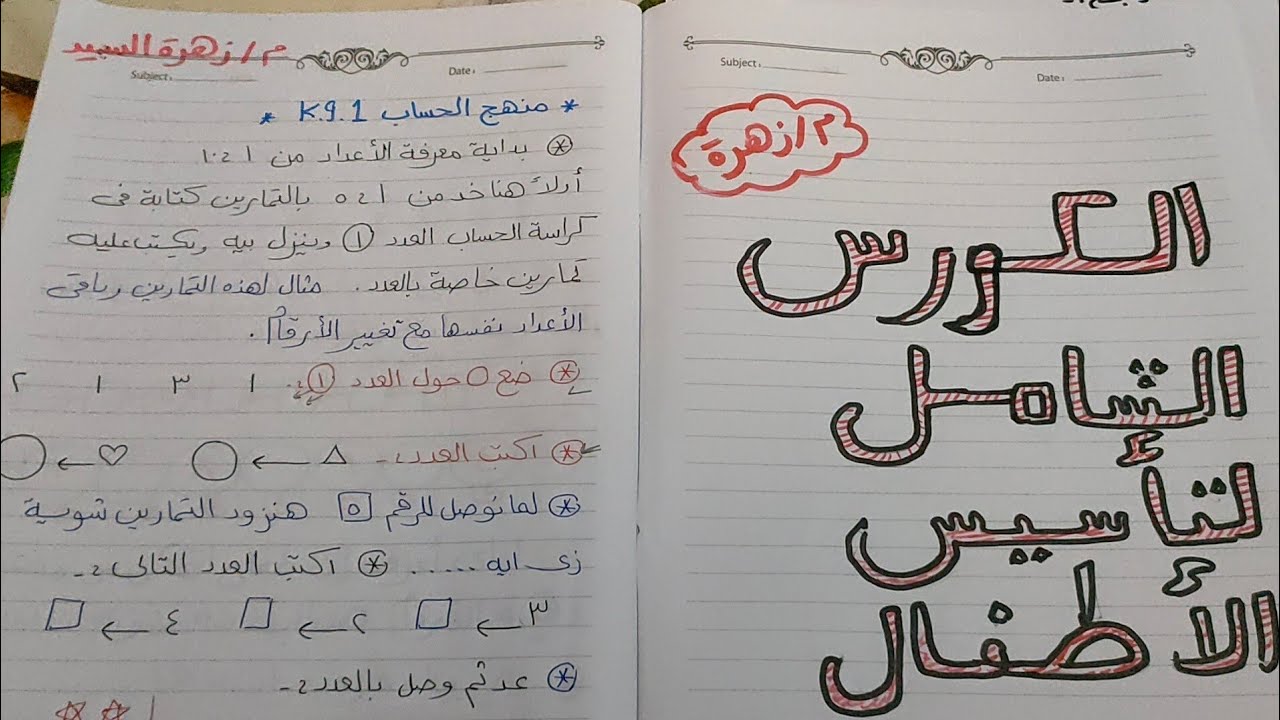 م/ زهرة
الكورس
الشامل
لتأسيس
الأطفال
Subject:
Date:
م/ زهرة السيد
Subject:
Date:
* منهج الحساب K.9.1 *
* بداية معرفة الأعداد من ١ : ٢٠
أولاً هناخد من ١ : ٥ بالتمارين كتابة فى
كراسة الحساب العدد ① وينزل بيه ويكتب عليه
تمارين خاصة بالعدد. مثال لهذه التمارين وباقى
الأعداد نفسها مع تغيير الأرقام.
* ضع ○ حول العدد ①:ـ ١ ٣ ١ ٢
* اكتب العدد:ـ △ ← ○ ♡ ← ○
* لما نوصل للرقم ٥ هنزود التمارين شوية
زى ايه ...... * اكتب العدد التالى :ـ
٣ ← □ ٢ ← □ ٤ ← □
* عد ثم وصل بالعدد :ـ
☆ ☆ ١